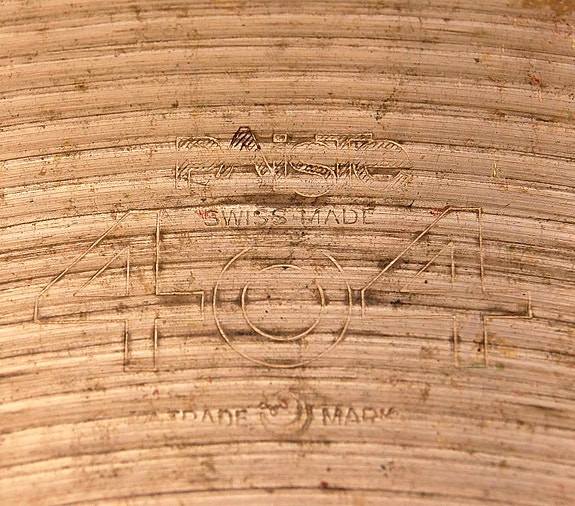 PAISTE
SWISS MADE
404
TRADE MARK